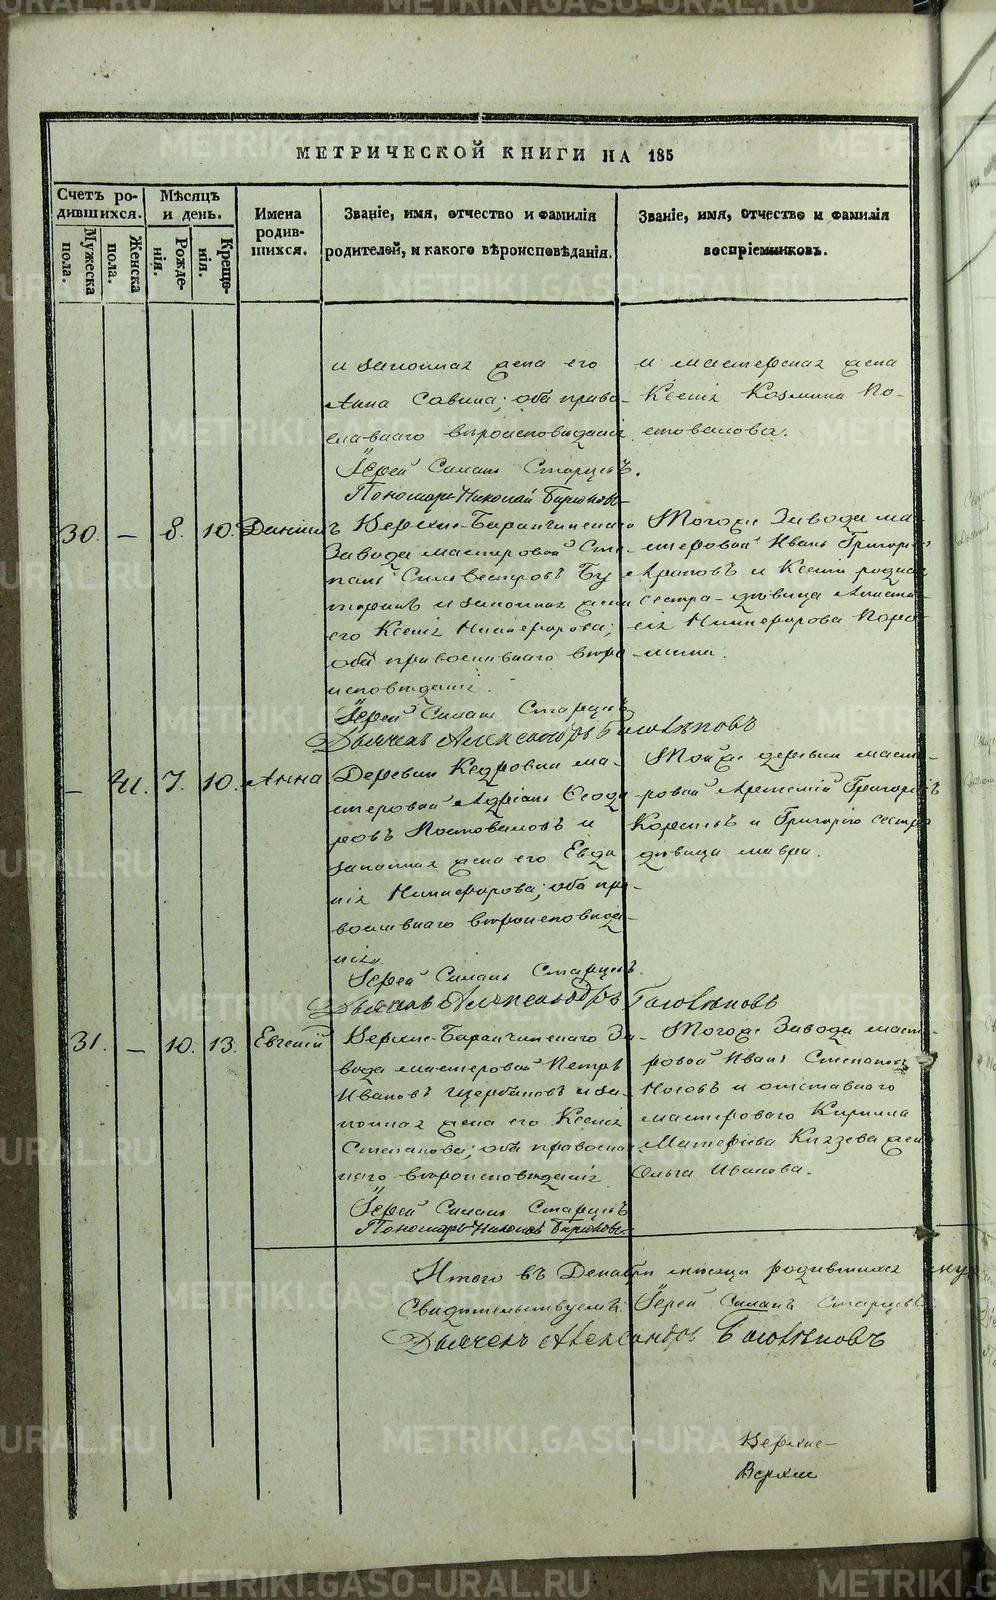 МЕТРИЧЕСКОЙ КНИГИ НА 185
Счетъ родившихся.
Мужеска пола.
Женска пола.
Мѣсяцъ и день.
Рожденія.
Крещенія.
Имена родившихся.
Званіе, имя, отчество и фамилія
родителей, и какого вѣроисповѣданія.
Званіе, имя, отчество и фамилія
воспріемниковъ.
и законная жена его
Анна Савина; оба право-
славнаго вѣроисповѣданія
Іерей Симеонъ Старцевъ.
Пономарь Николай Бирюковъ
и мастерская жена
Ксенія Козмина По-
стовалова.
30. — 8. 10. Даніилъ
Верхне-Баранчинскаго
Завода мастеровой Сте-
панъ Сильвестровъ
и законная жена
его Ксенія Никифорова;
оба православнаго вѣро-
исповѣданія.
Іерей Симеонъ Старцевъ
Дьячекъ Александръ
Тогоже Завода ма-
стеровой Иванъ Григорьевъ
и Ксеніи родная
сестра - дѣвица
Никифорова
— 7. 10. Анна
Деревни Кедровки ма-
стеровой Адріанъ Ѳеодо-
ровъ Постоваловъ и
законная жена его Евдо-
кія Никифорова; оба пра-
вославнаго вѣроисповѣда-
нія.
Іерей Симеонъ Старцевъ.
Дьячекъ Александръ
Тойже деревни масте-
ровой Григорьевъ
и Григорія сестра
дѣвица Мавра.
31. — 10. 13. Евгеній
Верхне-Баранчинскаго За-
вода мастеровой Петръ
Ивановъ Щербаковъ и за-
конная жена его Ксенія
Степанова; оба православ-
наго вѣроисповѣданія
Іерей Симеонъ Старцевъ
Пономарь Николай Бирюковъ.
Тогоже Завода масте-
ровой Иванъ Степановъ
Носовъ и отставного
мастероваго Кирилла
Матвѣева Князева жена
Ольга Иванова.
Итого въ Декабрѣ мѣсяцѣ родившихся
Свидѣтельствуемъ: Іерей Симеонъ Старцевъ
Дьячекъ Александръ
Верхне-
Верхне
METRIKI.GASO-URAL.RU